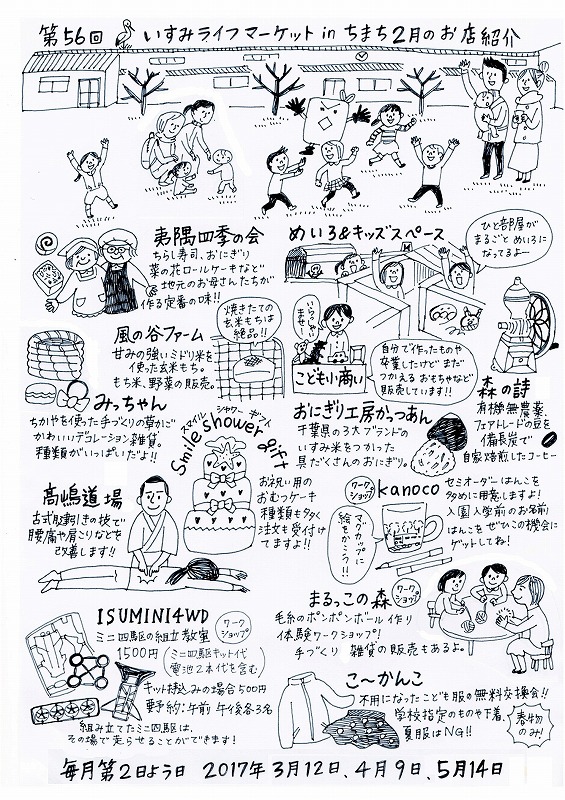 第56回 いすみライフマーケット in ちまち 2月のお店紹介
夷隅四季の会
ちらし寿司、おにぎり
菜の花ロールケーキなど
地元のお母さんたちが
作る定番の味!!
めいろ&キッズスペース
ひと部屋が
まるごと めいろに
なってるよー
風の谷ファーム
甘みの強いミドリ米を
使った玄米もち。
もち米、野菜の販売。
焼きたての
玄米もちは
絶品!!
いらっしゃい
ませ!
こども小商い
自分で作ったものや
卒業したけどまだ
つかえる おもちゃなど
販売しています!!
森の詩
有機無農薬、
フェアトレードの豆を
備長炭で
自家焙煎したコーヒー
みっちゃん
ちかやを使った手づくりの草かご
かわいいデコレーション雑貨。
種類がいっぱいだよ!!
スマイル シャワー ギフト
Smile shower gift
お祝い用の
おむつケーキ
種類も多く
注文も受付け
てますよ!!
おにぎり工房かっつあん
千葉県の3大ブランドの
いすみ米をつかった
具だくさんのおにぎり。
高嶋道場
古式胘割きの技で
腰痛や肩こりなどを
改善します!!
ワークショップ
kanoco
セミオーダーはんこを
多めに用意しますよ!
入園入学前のお名前
はんこをぜひこの機会に
ゲットしてね!
マグカップに
絵をかこう!!
ISUMINI4WD
ワークショップ
ミニ四駆の組立教室
1500円 (ミニ四駆キット代
電池2本代を含む)
キット持込みの場合500円
要予約:午前 午後各3名
組み立てたミニ四駆は、
その場で走らせることができます!
まるっこの森
ワークショップ
毛糸のポンポンボール作り
体験ワークショップ!
手づくり 雑貨の販売もあるよ。
こ〜かんこ
不用になったこども服の無料交換会!!
学校指定のものや下着、
夏服はNG!!
春物
のみ!
毎月第2日よう日 2017年3月12日、4月9日、5月14日